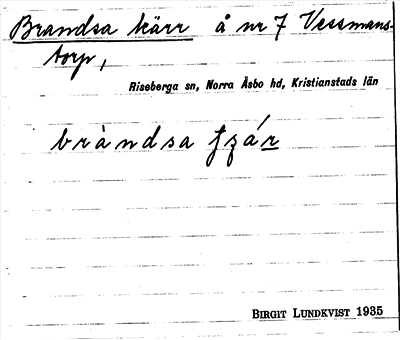 Brandsa kärr å nr 7 Vessmans-
torp,
Riseberga sn, Norra Åsbo hd, Kristianstads län
bràndsa
BIRGIT LUNDKVIST 1935